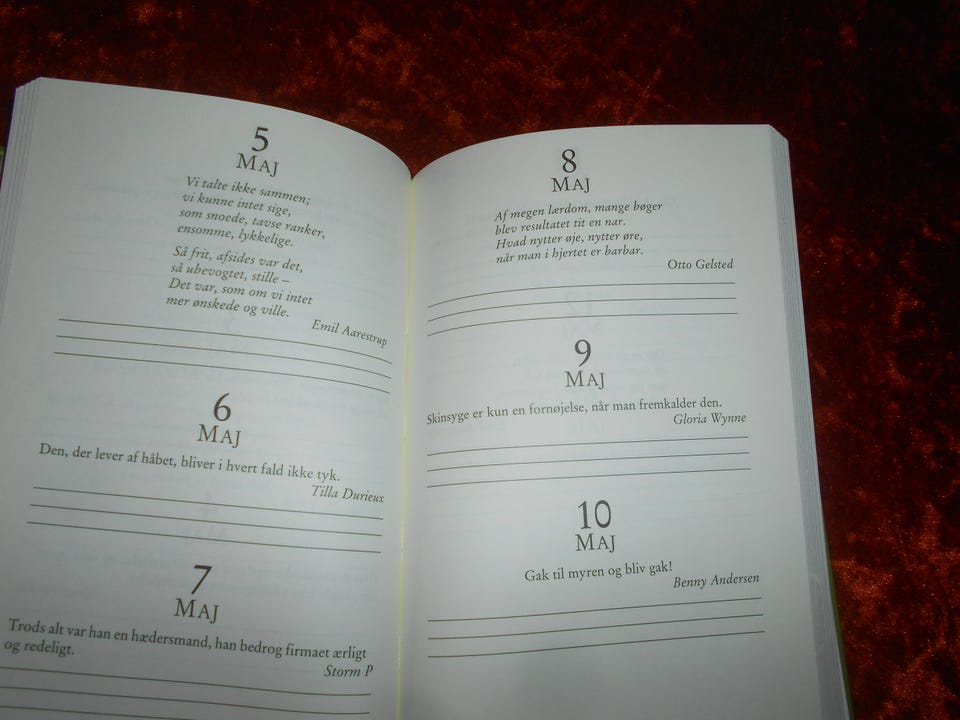 5
MAJ
Vi talte ikke sammen;
vi kunne intet sige,
som snoede, tavse ranker,
ensomme, lykkelige.
Så frit, afsides var det,
så ubevogtet, stille –
Det var, som om vi intet
mer ønskede og ville.
Emil Aarestrup
6
MAJ
Den, der lever af håbet, bliver i hvert fald ikke tyk.
Tilla Durieux
7
MAJ
Trods alt var han en hædersmand, han bedrog firmaet ærligt
og redeligt.
Storm P
8
MAJ
Af megen lærdom, mange bøger
blev resultatet tit en nar.
Hvad nytter øje, nytter øre,
når man i hjertet er barbar.
Otto Gelsted
9
MAJ
Skinsyge er kun en fornøjelse, når man fremkalder den.
Gloria Wynne
10
MAJ
Gak til myren og bliv gak!
Benny Andersen